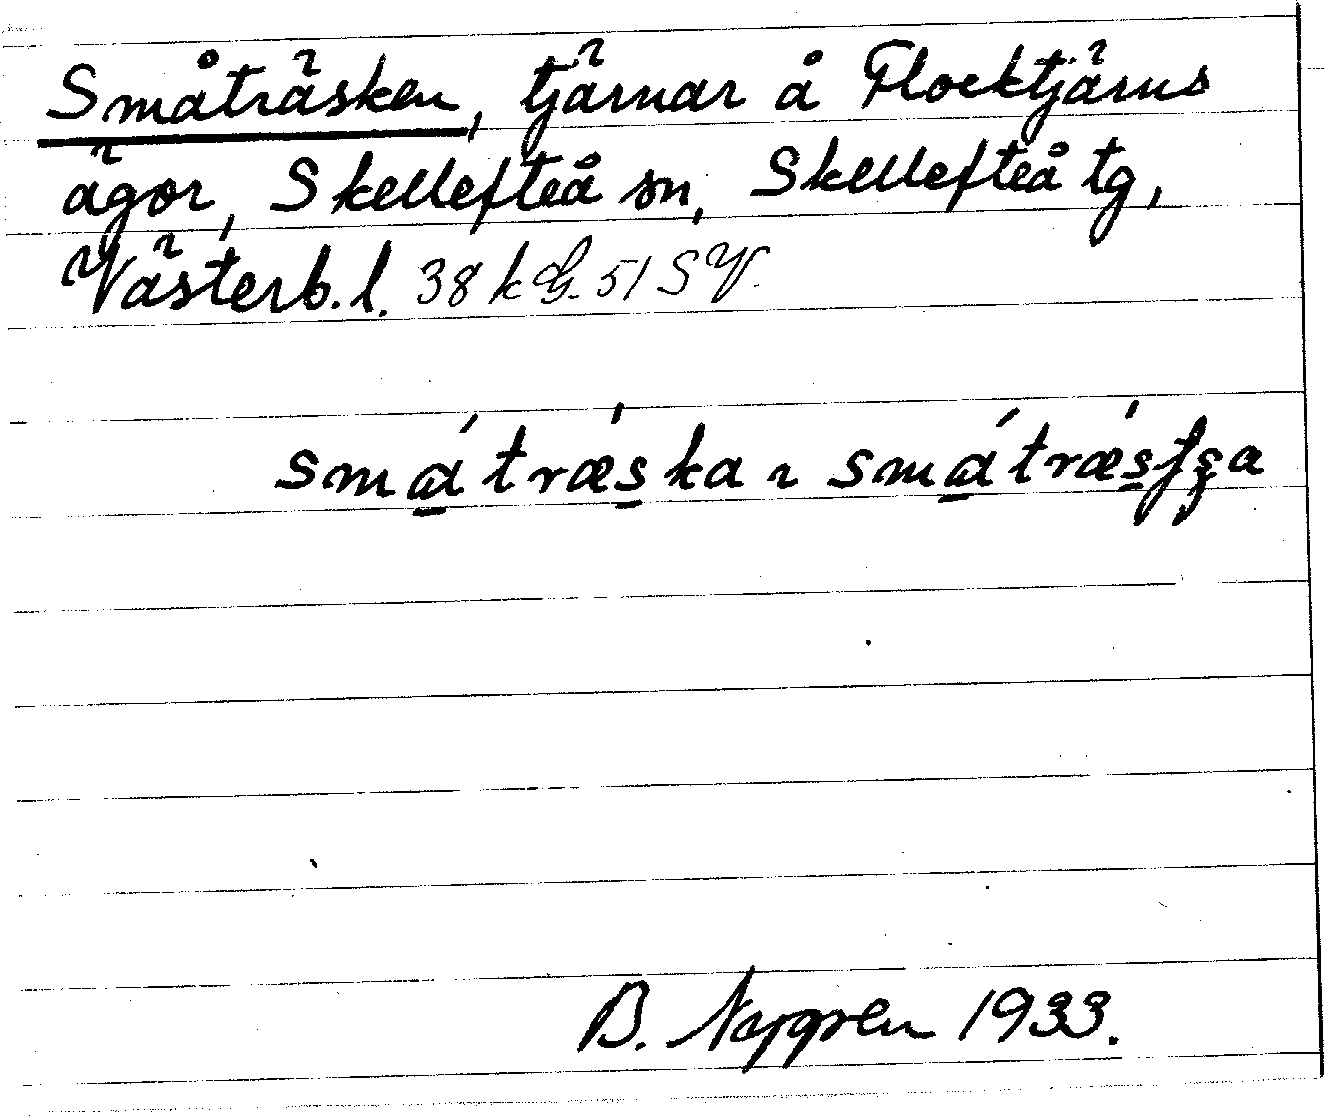 Småträsken, tjärnar å Floektjärns
ägor, Skellefteå sn, Skellefteå tg,
Västerb. l. 38 k G. 51 SV.
småtræska ~ småtræsʃʂa
B. Nygren 1933.